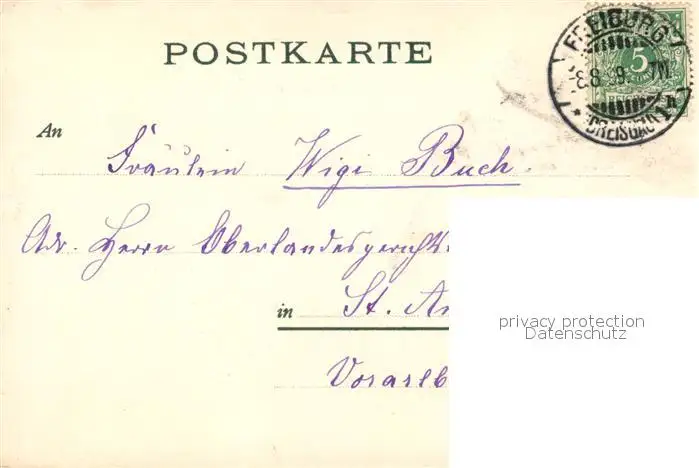 POSTKARTE
FREIBURG
5
BREISGAU
An
Fräulein Wigi Buch.
Adr. Herrn Oberlandesgerichts
in St. An
Vorarlb
privacy protection
Datenschutz